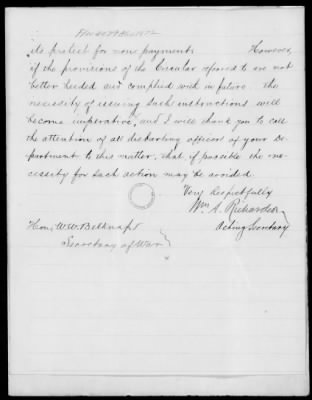 its protest for non payment. However,
if the provisions of the Circular referred to are not
better heeded and complied with in future, the
necessity of issuing such instructions will
become imperative, and I will thank you to call
the attention of all disbursing officers of your De-
partment to this matter, that if possible the ne-
cessity for such action may be avoided.
Very respectfully
Wm. A. Richardson
Acting Secretary
Hon. W. W. Belknap
Secretary of War